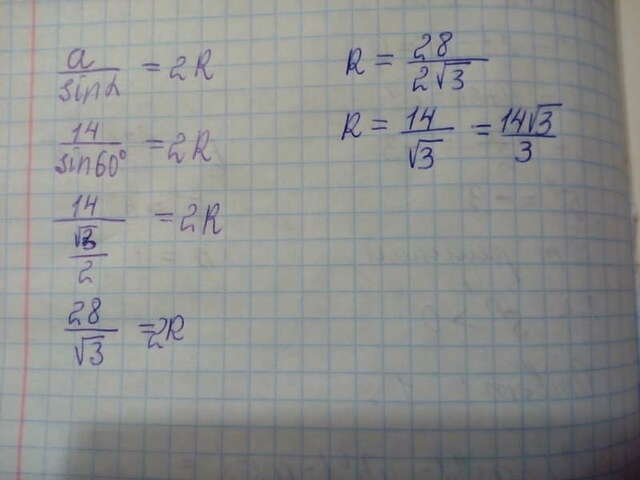 a/sinα = 2R
14/sin60° = 2R
14/(√3/2) = 2R
28/√3 = 2R
R = 28/(2√3)
R = 14/√3 = 14√3/3